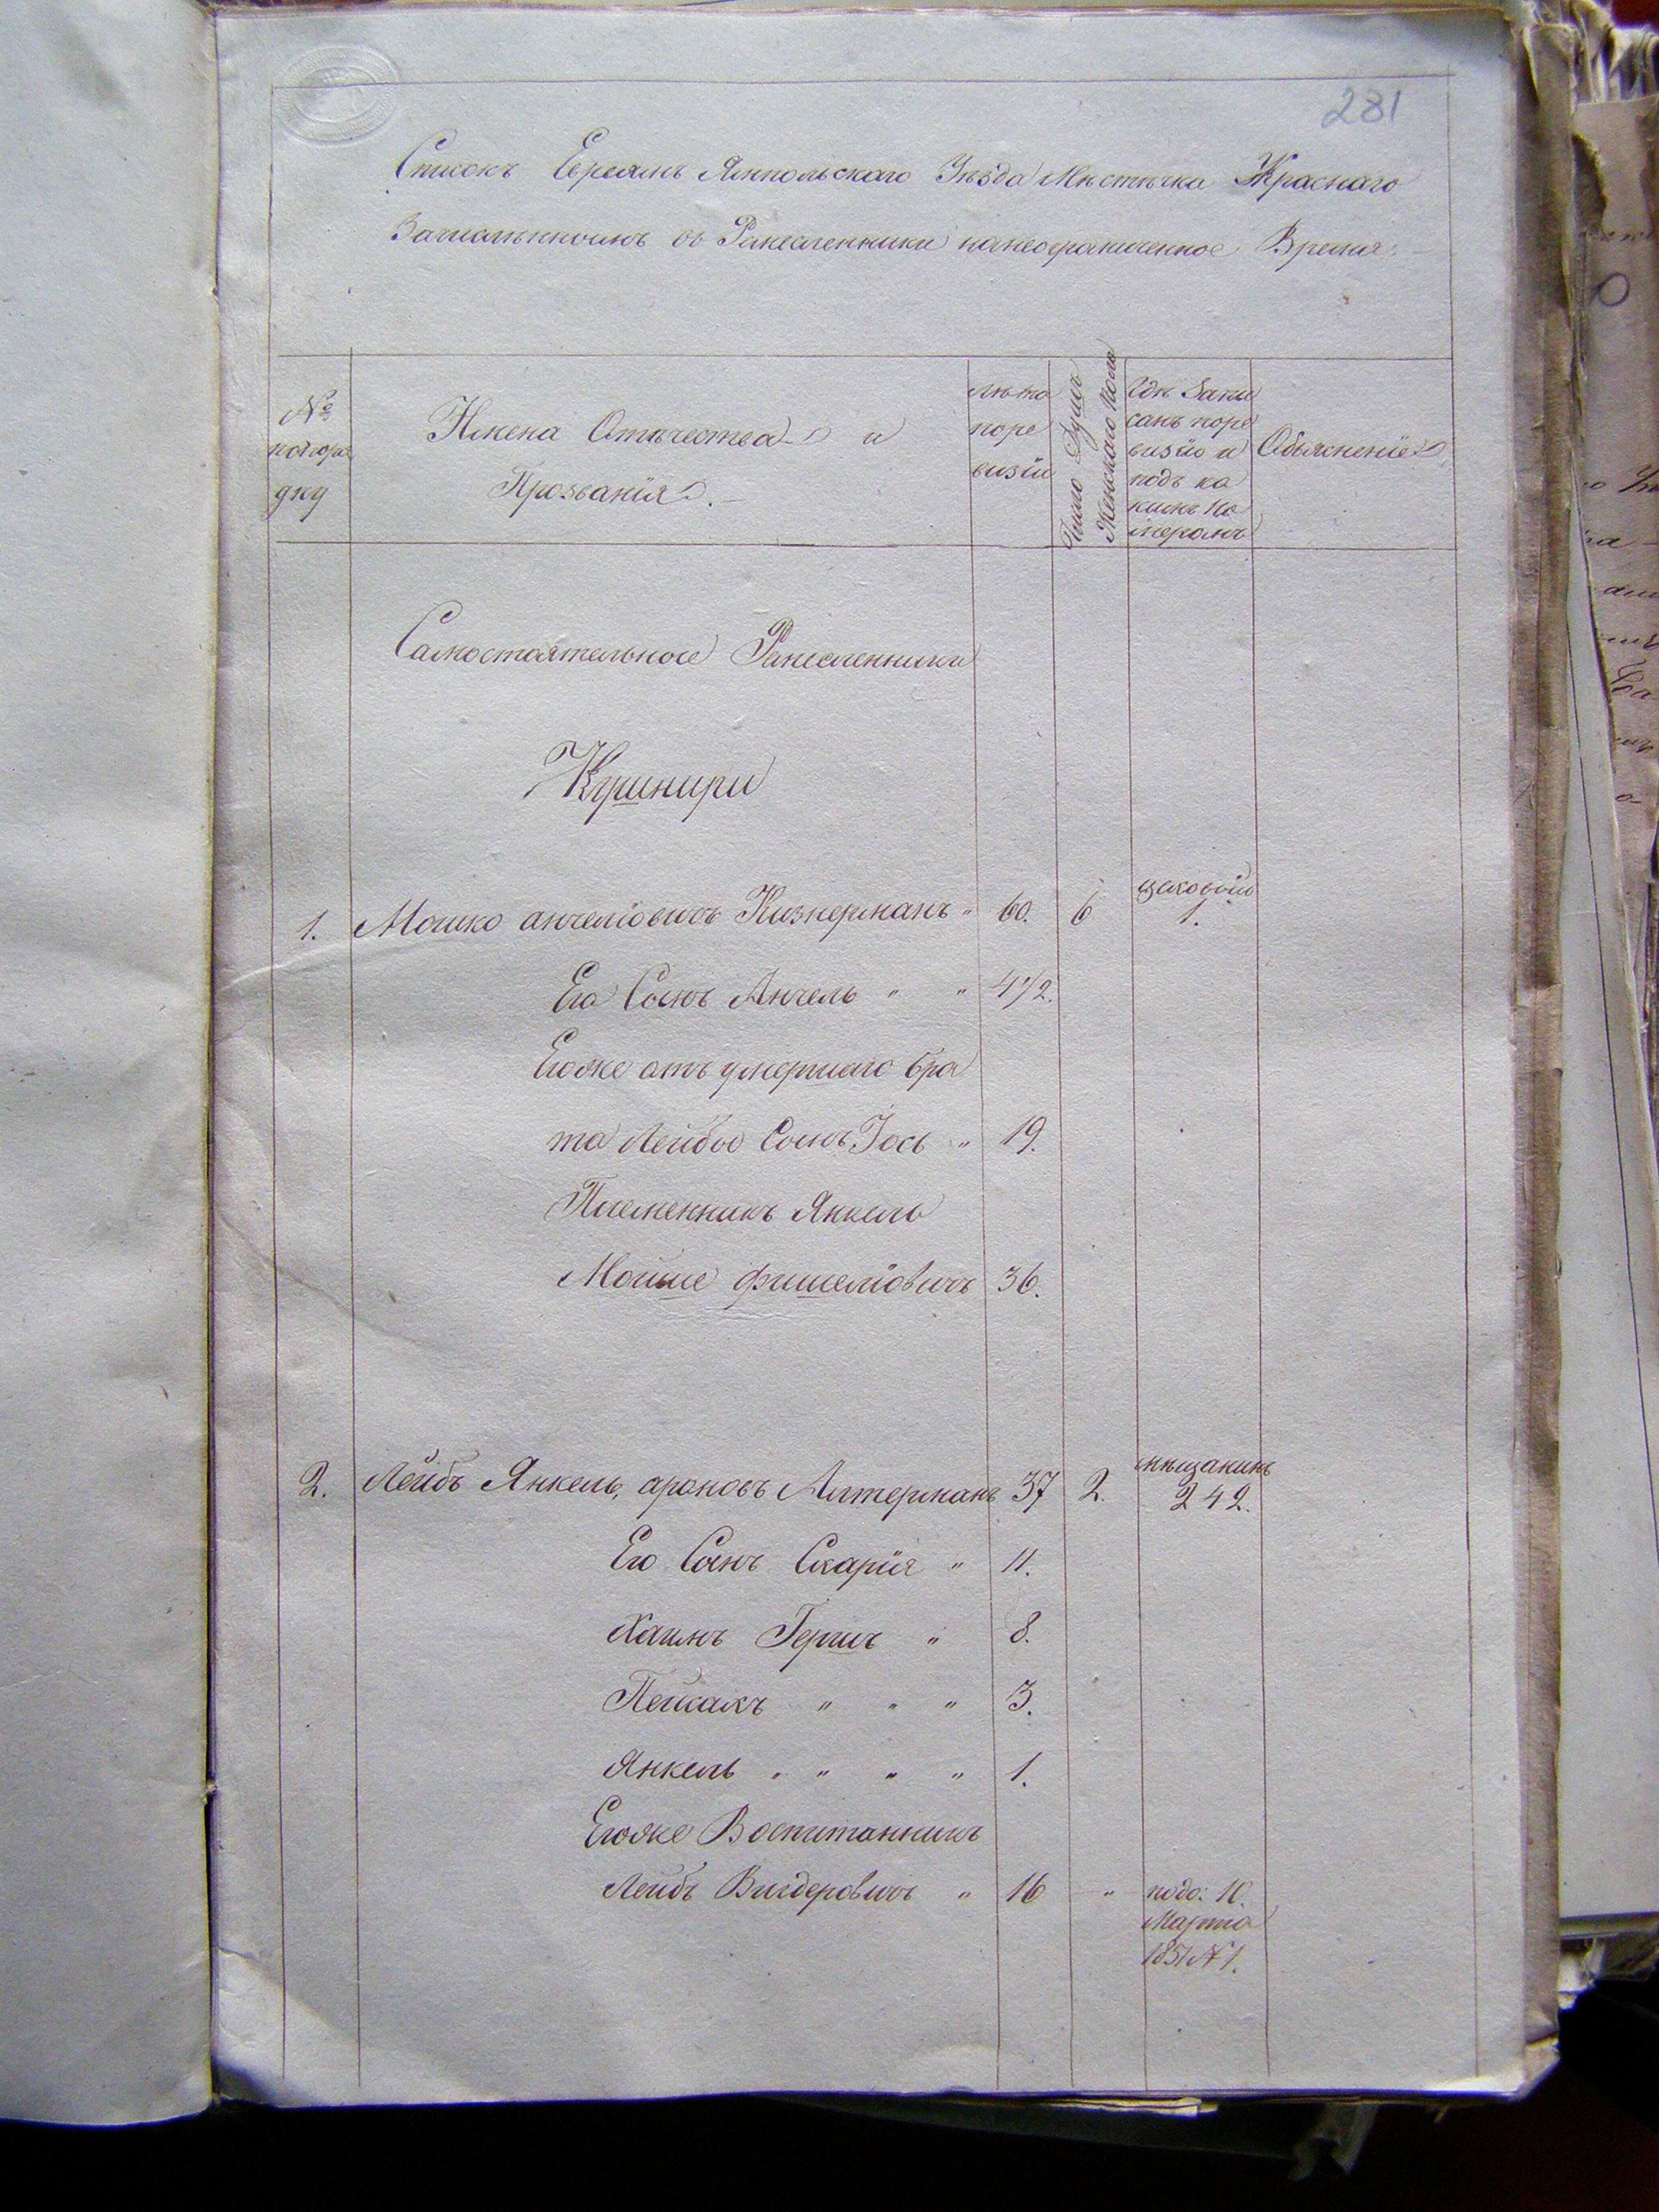 281
Списокъ Евреямъ Ямпольскаго Уѣзда Мѣстѣчка Краснаго
Зачисленнымъ въ Ремесленники нанеограниченное Время.
№
попоря
дку
Имена Отъчества и
Прозванія.
лѣта
поре
визіи
Число Душъ
Женскаго Пола
Гдѣ Запи
санъ поре
визіи и
подъ ка
кимъ Но
меромъ
Объясненіе
Самостоятельные Ремесленники
Кушнири
1. Мошко анчеліовичъ Кизнерманъ " 60. 6 цеховой
1.
Его Сынъ Анчель " " 4 1/2.
Егоже отъ умершаго бра
та Лейбы Сынъ Іось " 19.
Племенникъ Янкель
Мойше фишеліовичъ 36.
2. Лейбъ Янкель, ароновъ Алтерманъ 37 2. мѣщанинъ
242.
Его Сынъ Скарія " 11.
Хаимъ Гершъ " 8.
Пейсахъ " " " 3.
Янкель " " " " 1.
Егоже Воспитанникъ
Лейбъ Вигдеровичъ " 16 " подо: 10
Марта
1851 № 1.